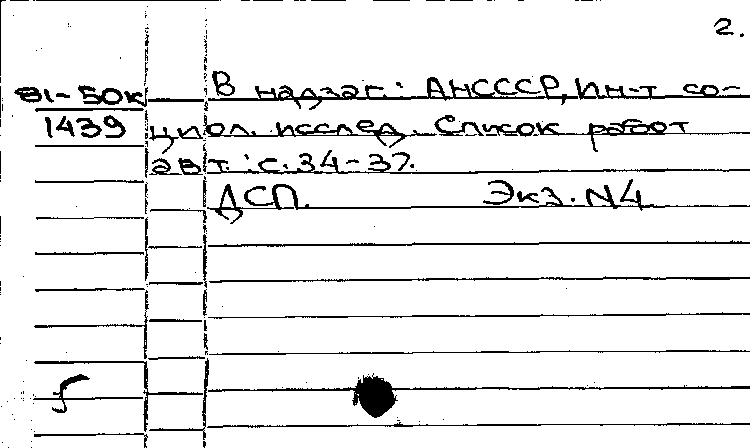 2.
81-50к В надзаг.: АНСССР, Ин-т со-
1439 циол. исслед. Список работ
авт.: с. 34-37.
ДСП. Экз. N4